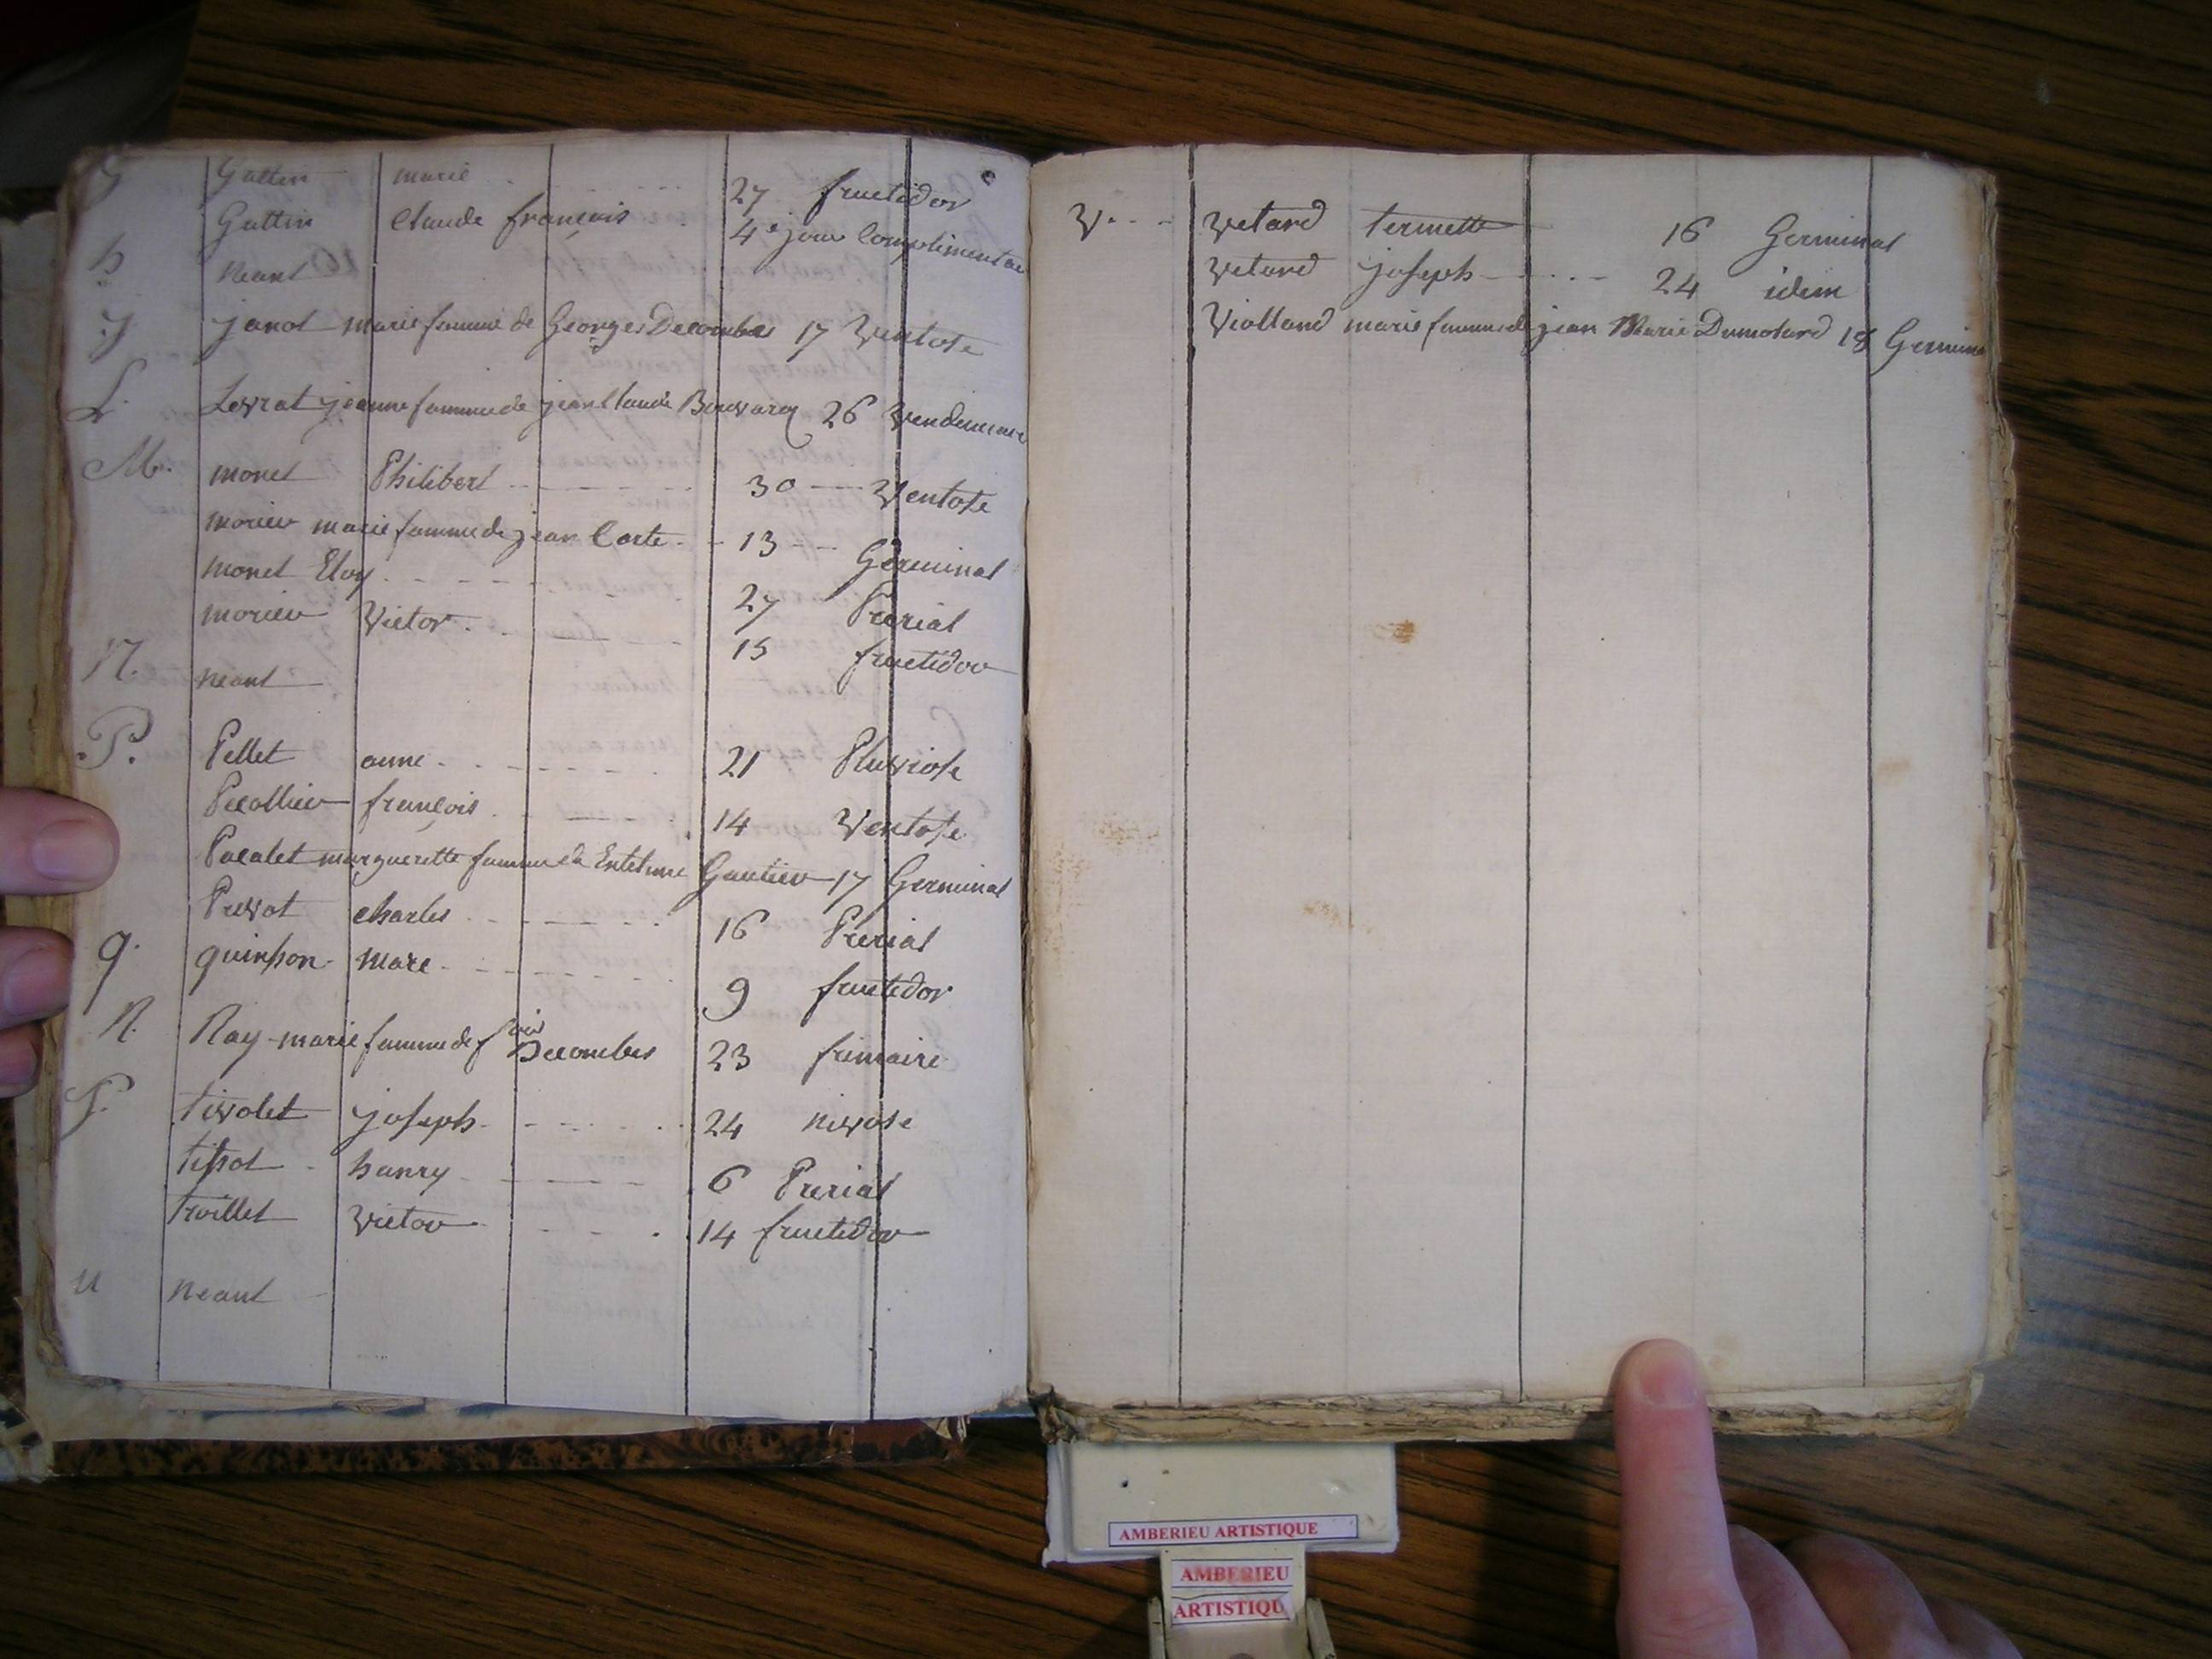 G Guttin marie 27 fructidor
Guttin Claude françois 4e jour Complimentai
h neant
J janot marie femme de Georges Decombes 17 Ventose
L. Levrat jeanne femme de jean Claude Bouvaro 26 Vendemiaire
M. monet Philibert 30 Ventose
morier marie femme de jean Carte 13 Germinal
monet Eloy 27 Prerial
morier Victor 15 fructidor
N. neant
P. Pellet anne 21 Pluviose
Pecollier françois 14 Ventose
Pacalet marguerette femme de Entelime Gautier 17 Germinal
Prevot charles 16 Prerial
q. quinson marc 9 fructidor
R. Ray marie femme de fçois Decombes 23 frimaire
T. tivolet joseph 24 nivose
tissot hanry 6 Prerial
trollet Victor 14 fructidor
u neant
V. Vetard termette 16 Germinal
Vetard joseph 24 idem
Violland marie femme de jean Marie Dumolard 18 Germina
AMBERIEU ARTISTIQUE
AMBERIEU
ARTISTIQU